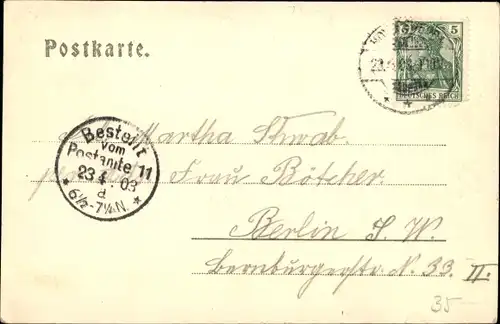 Postkarte.
5
23. 4. 03.
DEUTSCHES REICH
Martha Schwab.
Bestellt
vom
Postamte 11
23 4. 03
6½-7½N.
Frau Bötcher.
Berlin S. W.
Bernburgerstr. N. 33. II.
35-